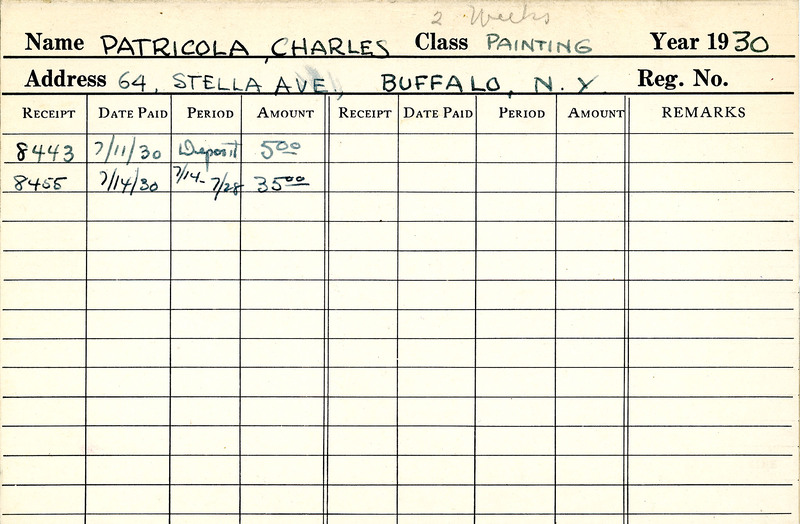 2 Weeks
Name PATRICOLA, CHARLES Class PAINTING Year 1930
Address 64, STELLA AVE., BUFFALO, N.Y. Reg. No.
RECEIPT DATE PAID PERIOD AMOUNT RECEIPT DATE PAID PERIOD AMOUNT REMARKS
8443 7/11/30 Deposit 5.00
8455 7/14/30 7/14-7/28 35.00